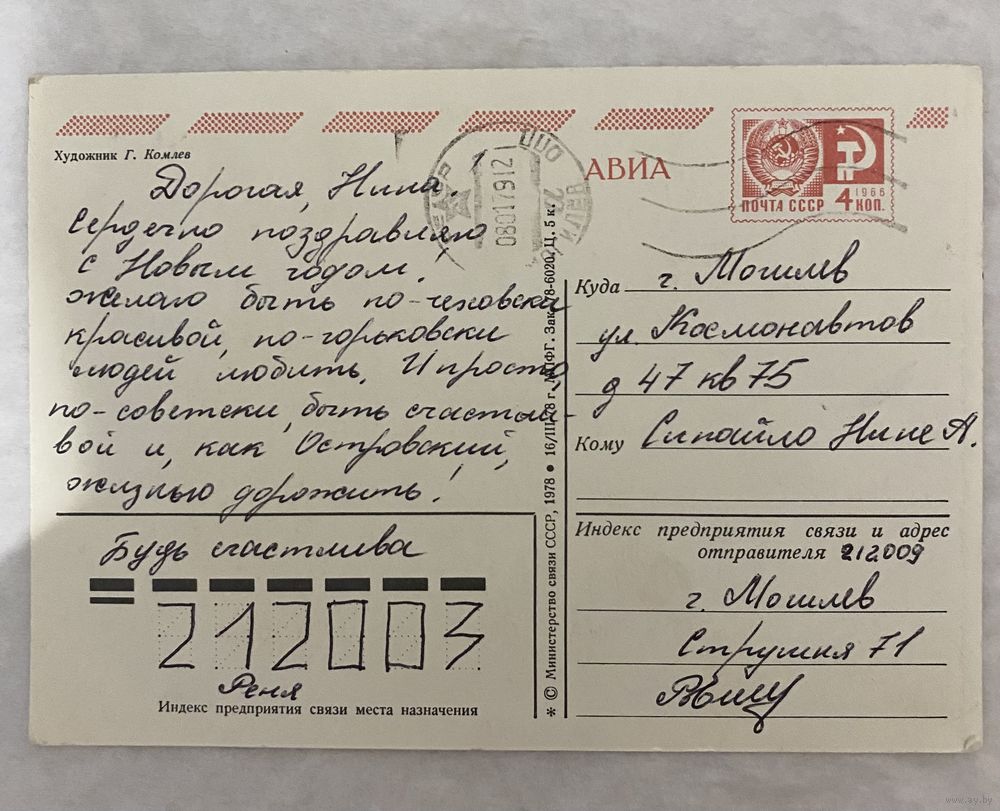 Художник Г. Комлев
АВИА
1966
ПОЧТА СССР 4 КОП.
Дорогая, Нина!
Сердечно поздравляю
с Новым годом!
желаю быть по-чеховски
красивой, по-горьковски
людей любить. И просто
по-советски, быть счастли-
вой и, как Островский,
жизнью дорожить!
Будь счастлива
212003
Реня
Индекс предприятия связи места назначения
* © Министерство связи СССР, 1978 • 16/III-78 г. МПФГ. Зак. 78-6020. Ц. 5 к.
Куда г. Могилев
ул. Космонавтов
д 47 кв 75
Кому Сипайло Нине А.
Индекс предприятия связи и адрес
отправителя 212009
г. Могилев
Струшня 71
www.ay.by